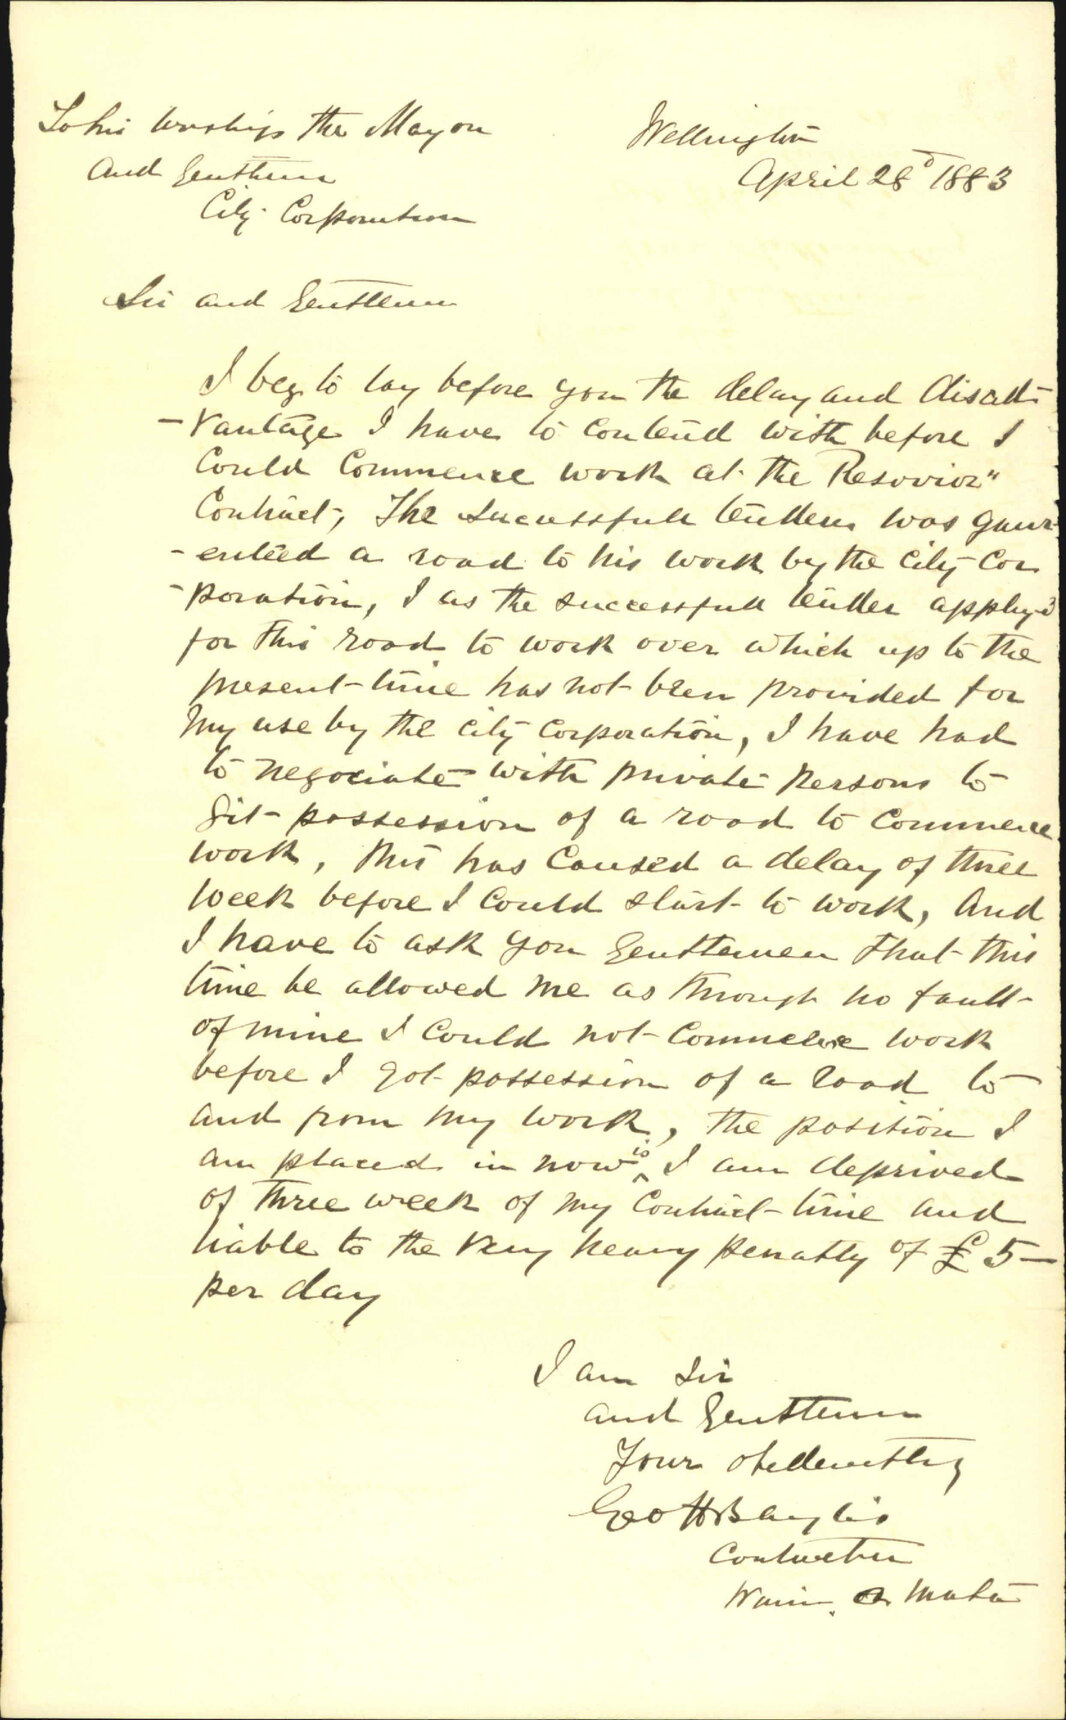 To his Worship the Mayor
and Gentlemen
City Corporation
Wellington
April 28 1883
Sir and Gentlemen
I beg to lay before you the delay and disad-
-vantage I have to contend with before I
could commence work at the Resovior"
Contract, The successfull tender was gaur-
-enteed a road to his work by the City Cor
-poration, I as the successfull tender apply'd
for this road to work over which up to the
present time has not been provided for
my use by the city corporation, I have had
to negociate with private persons to
git possession of a road to commence
work, this has caused a delay of three
week before I could start to work, and
I have to ask you Gentlemen that this
time be allowed me as through no fault
of mine I could not commence work
before I got possession of a road to
and from my work, the position I
am placed in now is I am deprived
of three week of my contract time and
liable to the very heavy penalty of £5-
per day
I am Sir
and Gentlemen
Your obedently
Geo H Baylis
Contractor
Wainui o Mata